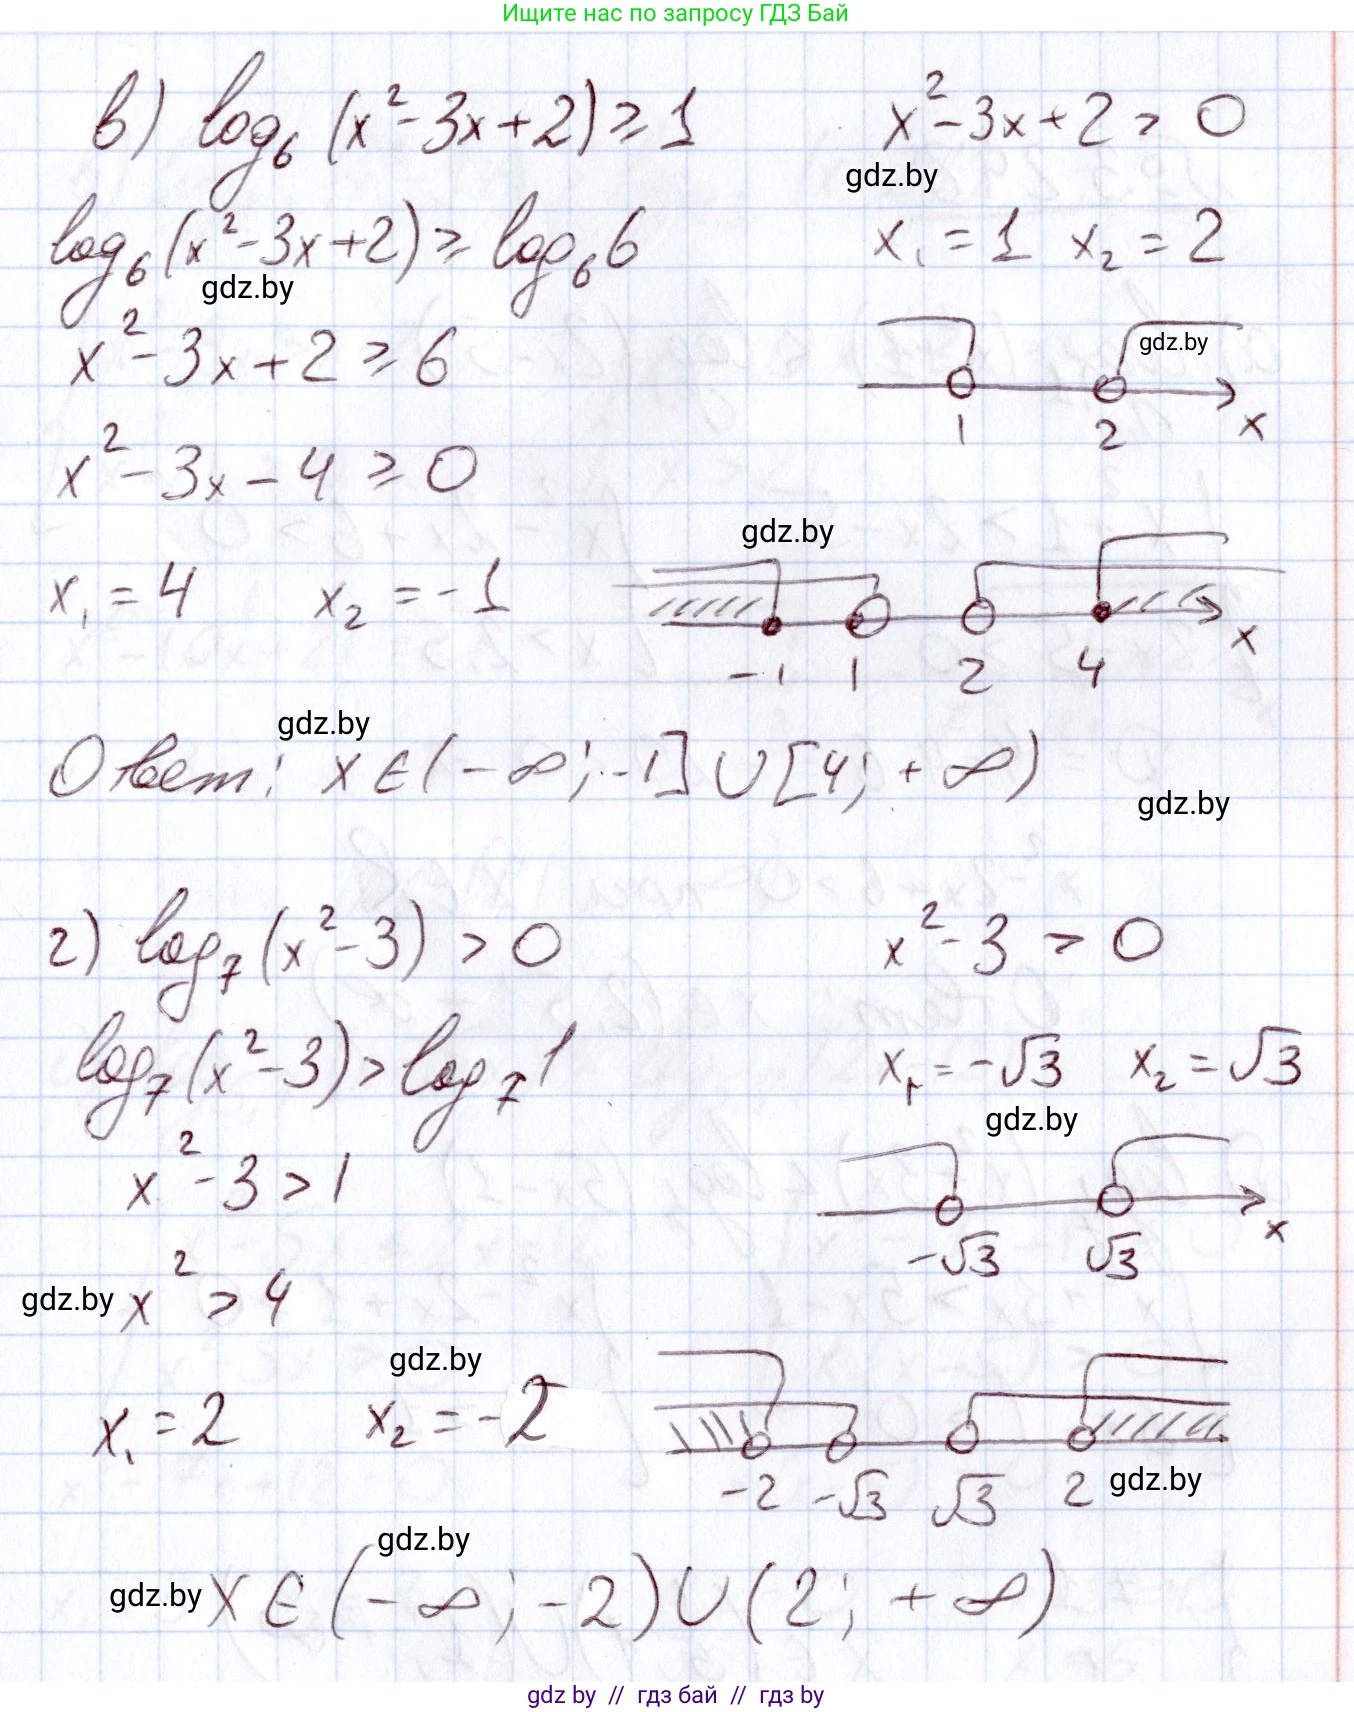 Ищите нас по запросу ГДЗ Бай
в) log₆ (x² - 3x + 2) ≥ 1
x² - 3x + 2 > 0
gdz.by
log₆ (x² - 3x + 2) ≥ log₆ 6
x₁ = 1 x₂ = 2
gdz.by
x² - 3x + 2 ≥ 6
gdz.by
1 2 x
x² - 3x - 4 ≥ 0
gdz.by
x₁ = 4 x₂ = -1
-1 1 2 4 x
gdz.by
Ответ: x ∈ (-∞; -1] ∪ [4; +∞)
gdz.by
г) log₇ (x² - 3) > 0
x² - 3 > 0
log₇ (x² - 3) > log₇ 1
x₁ = -√3 x₂ = √3
gdz.by
x² - 3 > 1
-√3 √3 x
gdz.by x² > 4
gdz.by
x₁ = 2 x₂ = -2
-2 -√3 √3 2 gdz.by
gdz.by
gdz.by x ∈ (-∞; -2) ∪ (2; +∞)
gdz by // гдз бай // гдз by